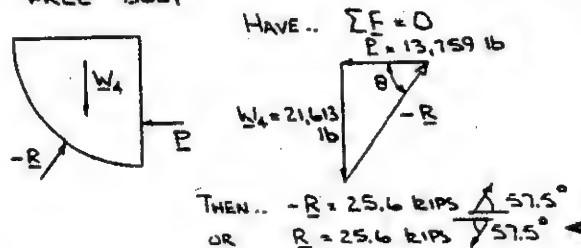 FREE BODY
HAVE.. ΣF = 0
P = 13,759 lb
θ
W4 = 21,613 lb
-R
W4
P
-R
THEN.. -R = 25.6 KIPS 57.5°
OR R = 25.6 KIPS 57.5°